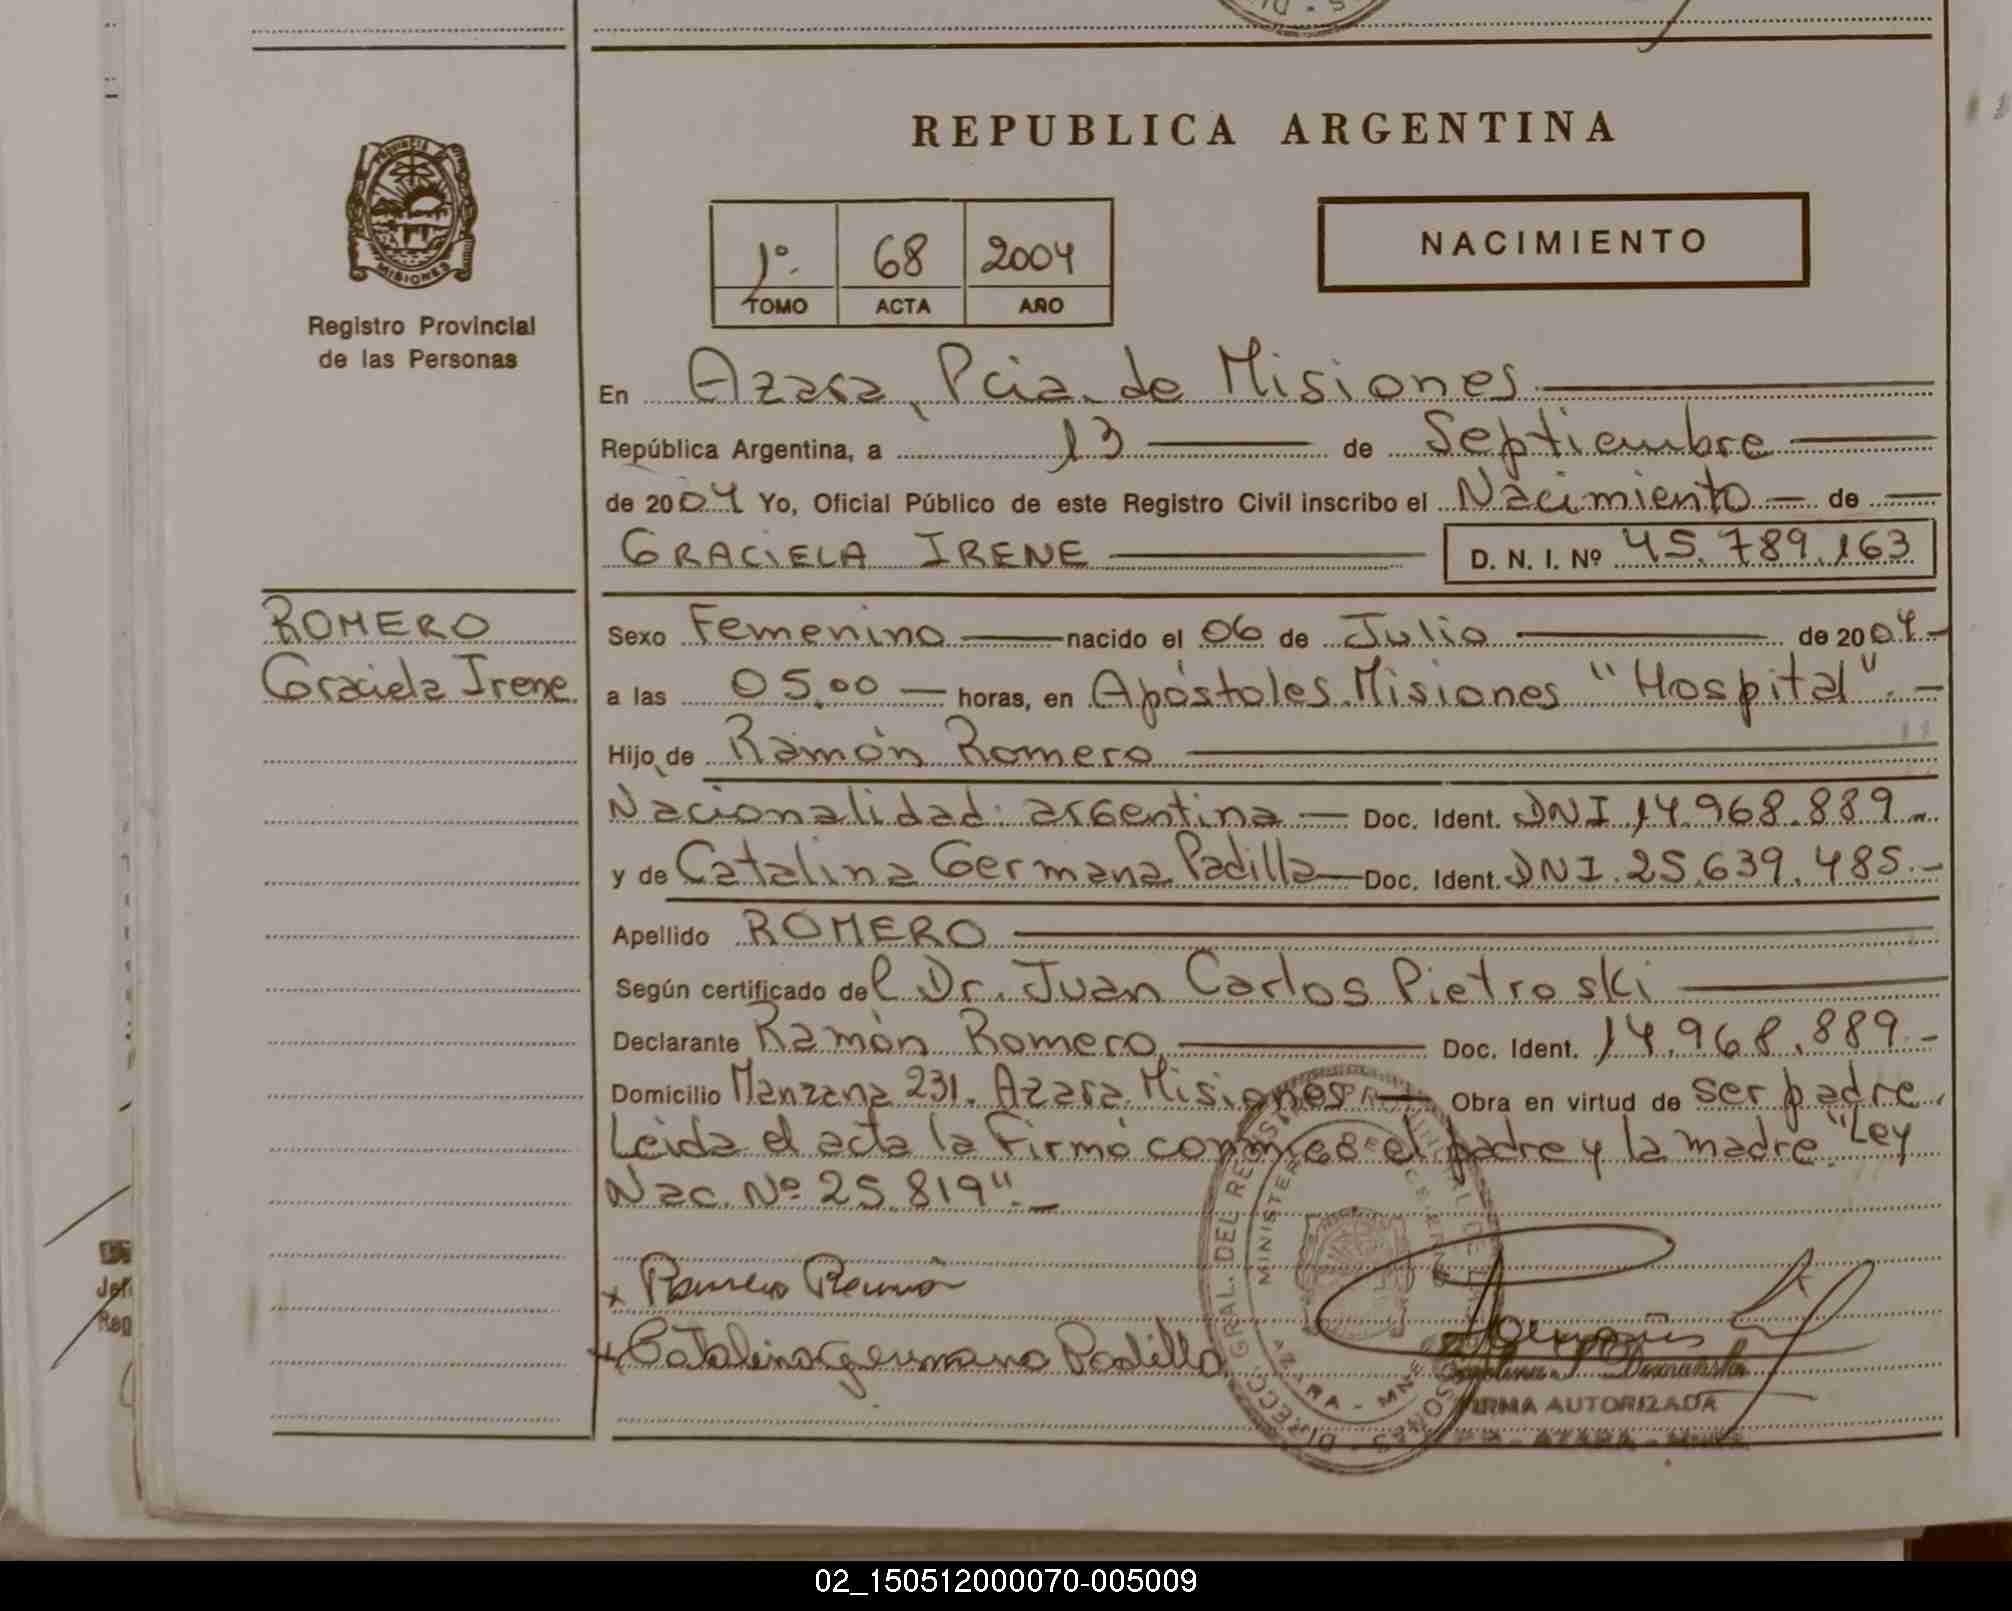 REPUBLICA ARGENTINA
PROVINCIA DE
MISIONES
Registro Provincial
de las Personas
1º 68 2004
TOMO ACTA AÑO
NACIMIENTO
En Azara, Pcia. de Misiones
República Argentina, a 13 de Septiembre
de 2004 Yo, Oficial Público de este Registro Civil inscribo el Nacimiento de
GRACIELA IRENE D. N. I. Nº 45.789.163
ROMERO
Graciela Irene
Sexo Femenino nacido el 06 de Julio de 2004
a las 05,00 horas, en Apóstoles Misiones "Hospital".
Hijo de Ramón Romero
Nacionalidad: argentina Doc. Ident. DNI 14.968.889
y de Catalina Germana Padilla Doc. Ident. DNI 25.639.485
Apellido ROMERO
Según certificado del Dr. Juan Carlos Pietroski
Declarante Ramón Romero Doc. Ident. 14.968.889
Domicilio Manzana 231. Azara Misiones Obra en virtud de ser padre.
Leida el acta la firmó conmigo el padre y la madre "Ley
Nac. Nº 25.819".
x Romero Ramón
x Catalina germana Padilla
FIRMA AUTORIZADA
AZARA - MNES
02_150512000070-005009